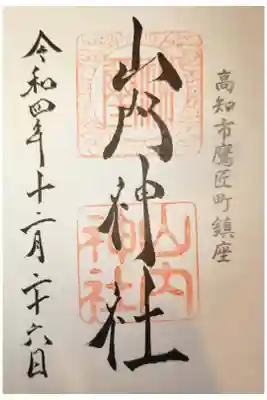 高知市鷹匠町鎮座
山内神社
山内
神社
令和四年十二月二十六日